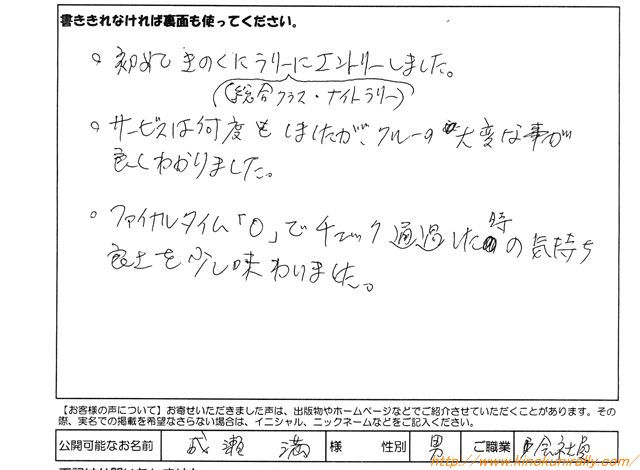 書ききれなければ裏面も使ってください。
。初めて きのくにラリーにエントリーしました。
(総合クラス・ナイトラリー)
。サービスは何度もしましたが、クルーの大変な事が
良くわかりました。
。ファイナルタイム「0」でチェック通過した時の気持ち
良さを少し味わいました。
【お客様の声について】お寄せいただきました声は、出版物やホームページなどでご紹介させていただくことがあります。その
際、実名での掲載を希望なさらない場合は、イニシャル、ニックネームなどをご記入ください。
公開可能なお名前 成瀬 満 様 性別 男 ご職業 会社員